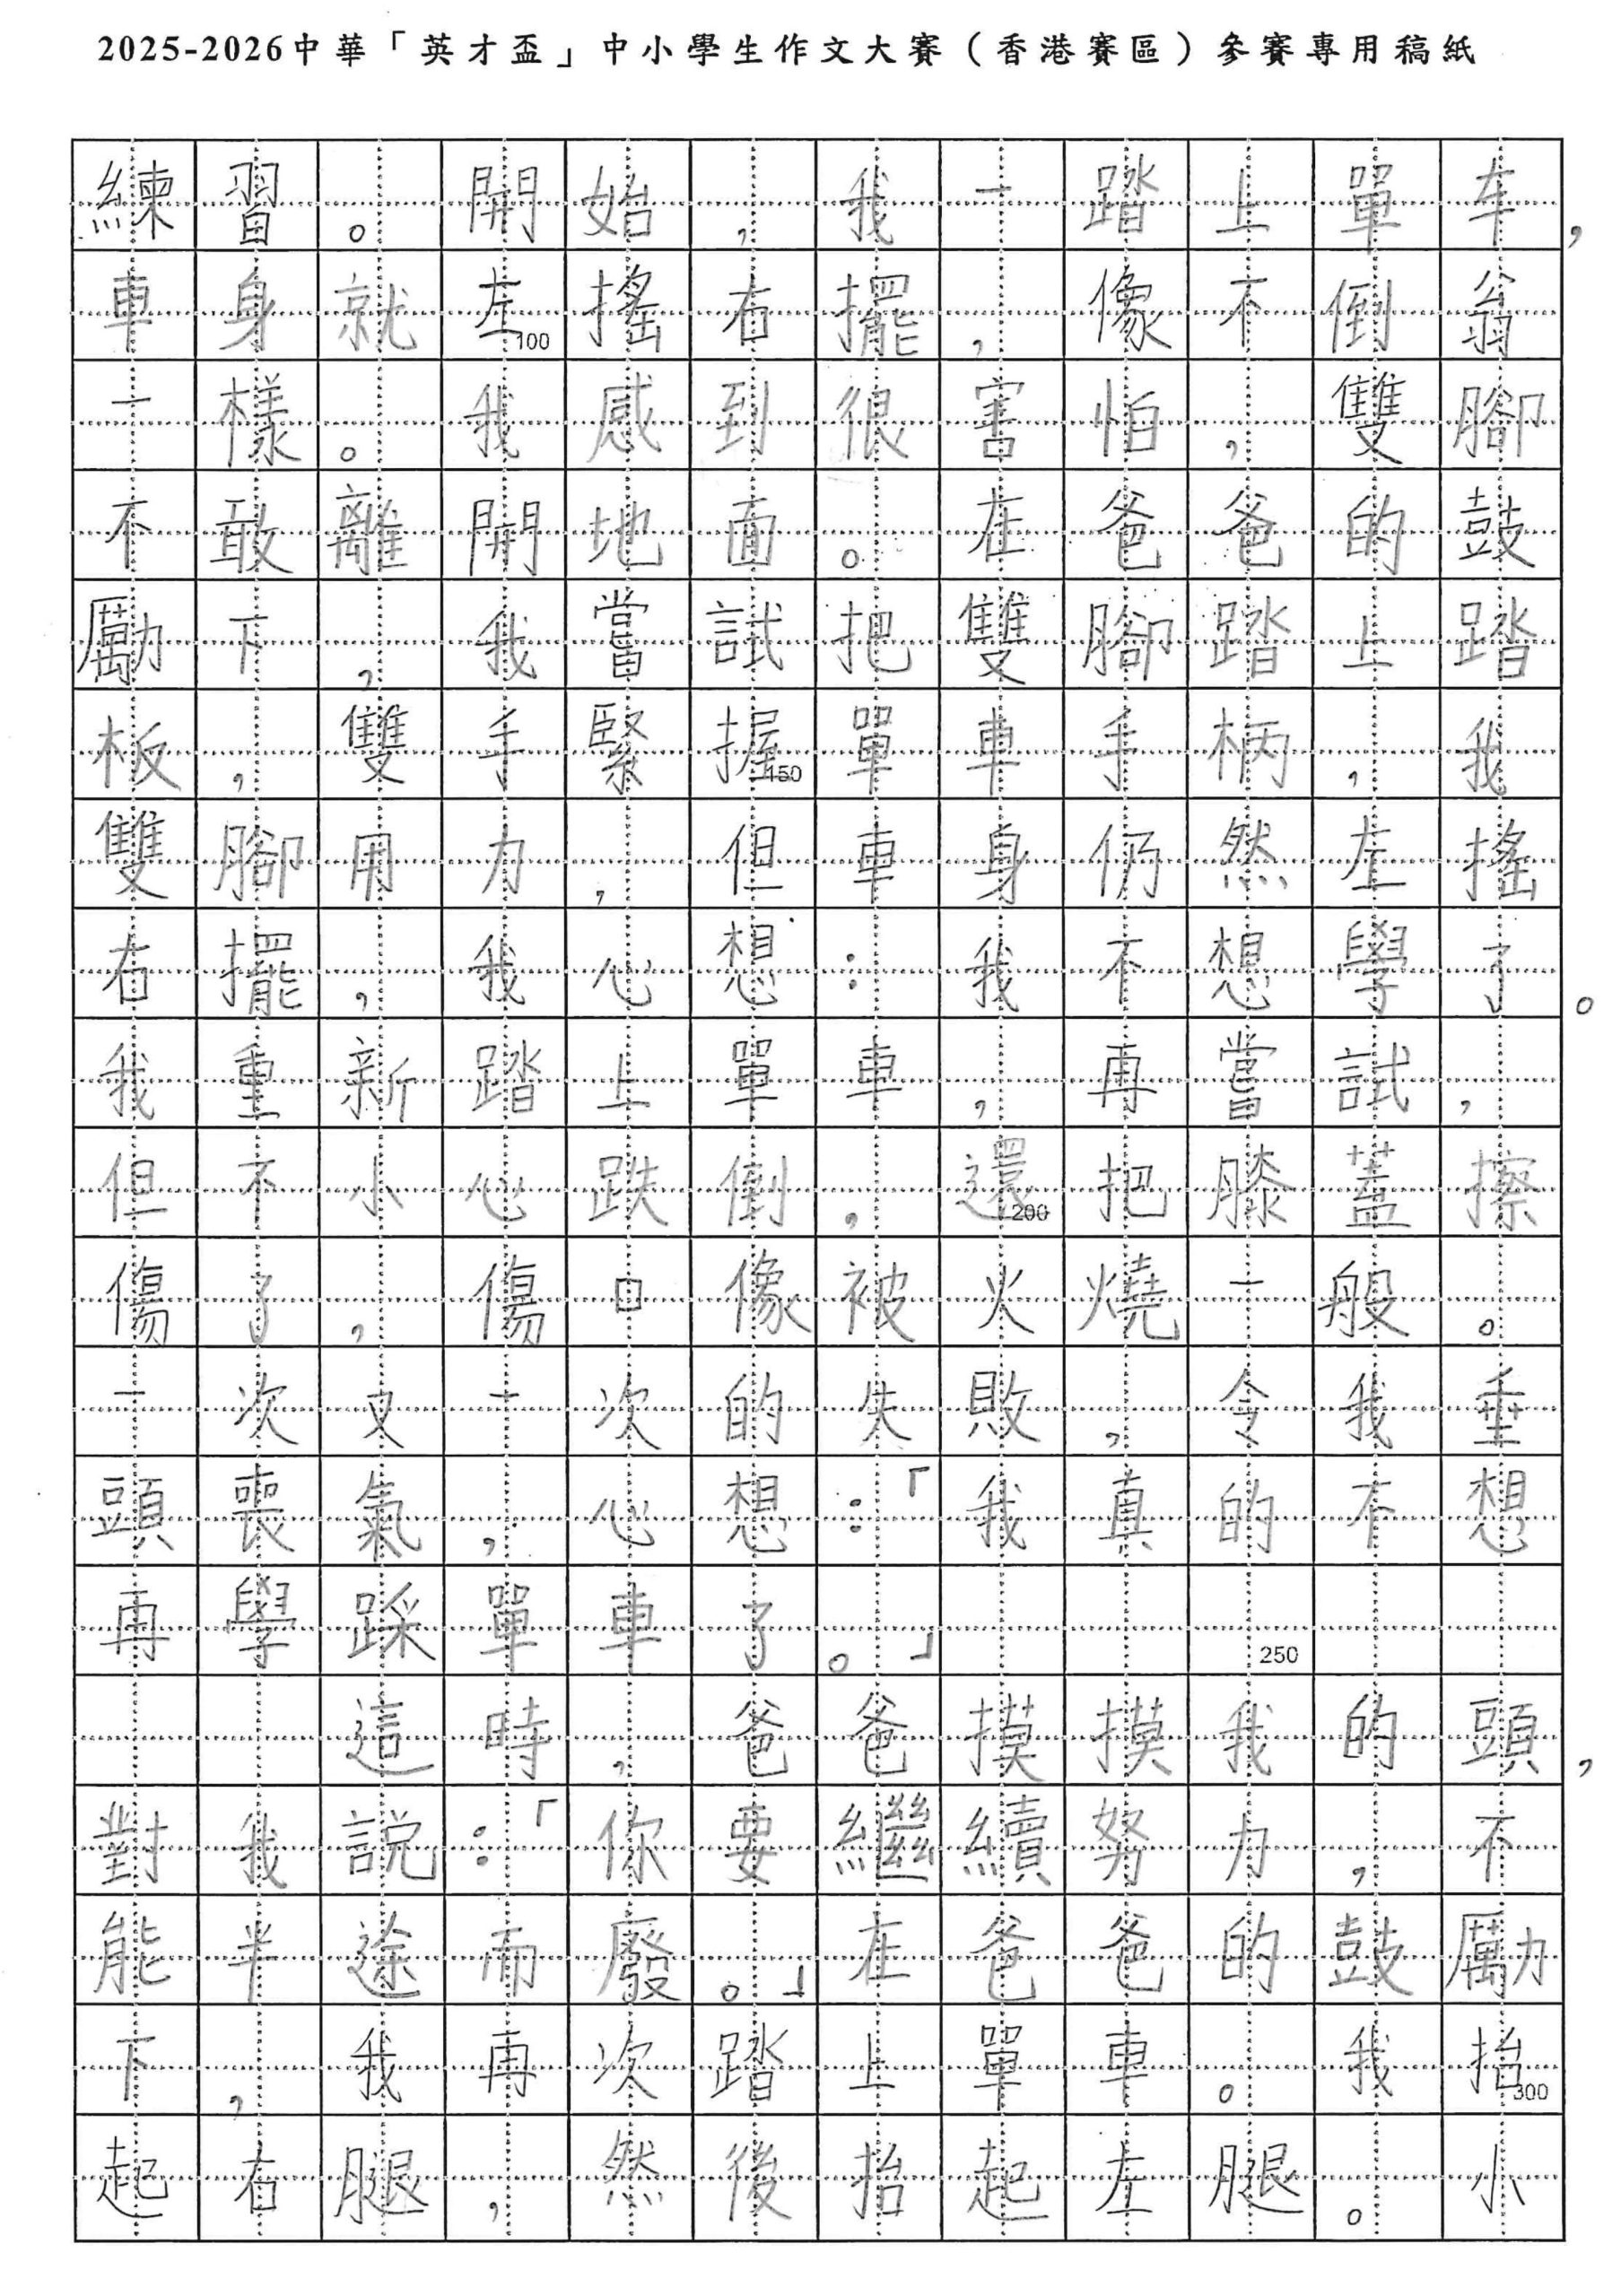 2025-2026中華「英才盃」中小學生作文大賽（香港賽區）參賽專用稿紙
練習。開始，我一踏上單车，
車身就左搖右擺，像不倒翁
100
一樣。我感到很害怕，雙腳
不敢離開地面。在爸爸的鼓
勵下，我嘗試把雙腳踏上踏
板，雙手緊握單車手柄，我
150
雙腳用力，但車身仍然左搖
右擺，我心想：我不想學了。
我重新踏上單車，再嘗試，
但不小心跌倒，還把膝蓋擦
200
傷了，傷口像被火燒一般。
一次又一次的失敗，令我垂
頭喪氣，心想：「我真的不想
再學踩單車了。」
250
這時，爸爸摸摸我的頭，
對我説：「你要繼續努力，不
能半途而廢。」在爸爸的鼓勵
下，我再次踏上單車。我抬
300
起右腿，然後抬起左腿。小